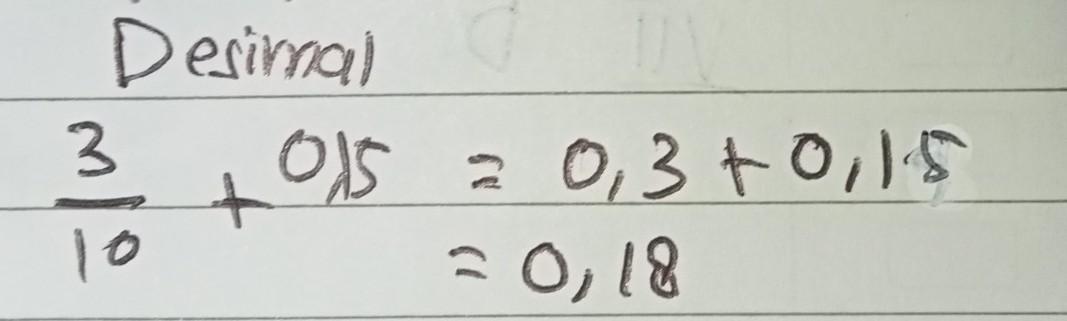 Desimal
3/10 + 0,15 = 0,3 + 0,15
= 0,18